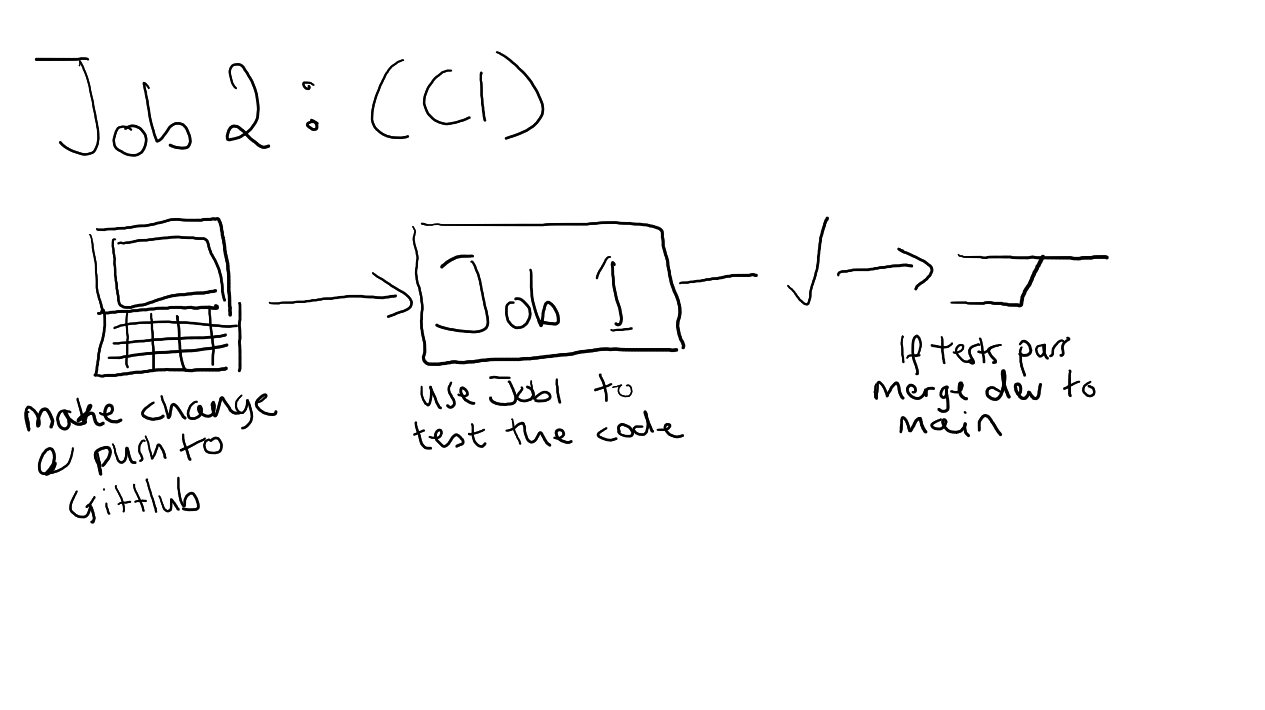 Job 2: (CI)
Job 1
make change
& push to
GitHub
use Job1 to
test the code
If tests pass
merge dev to
main